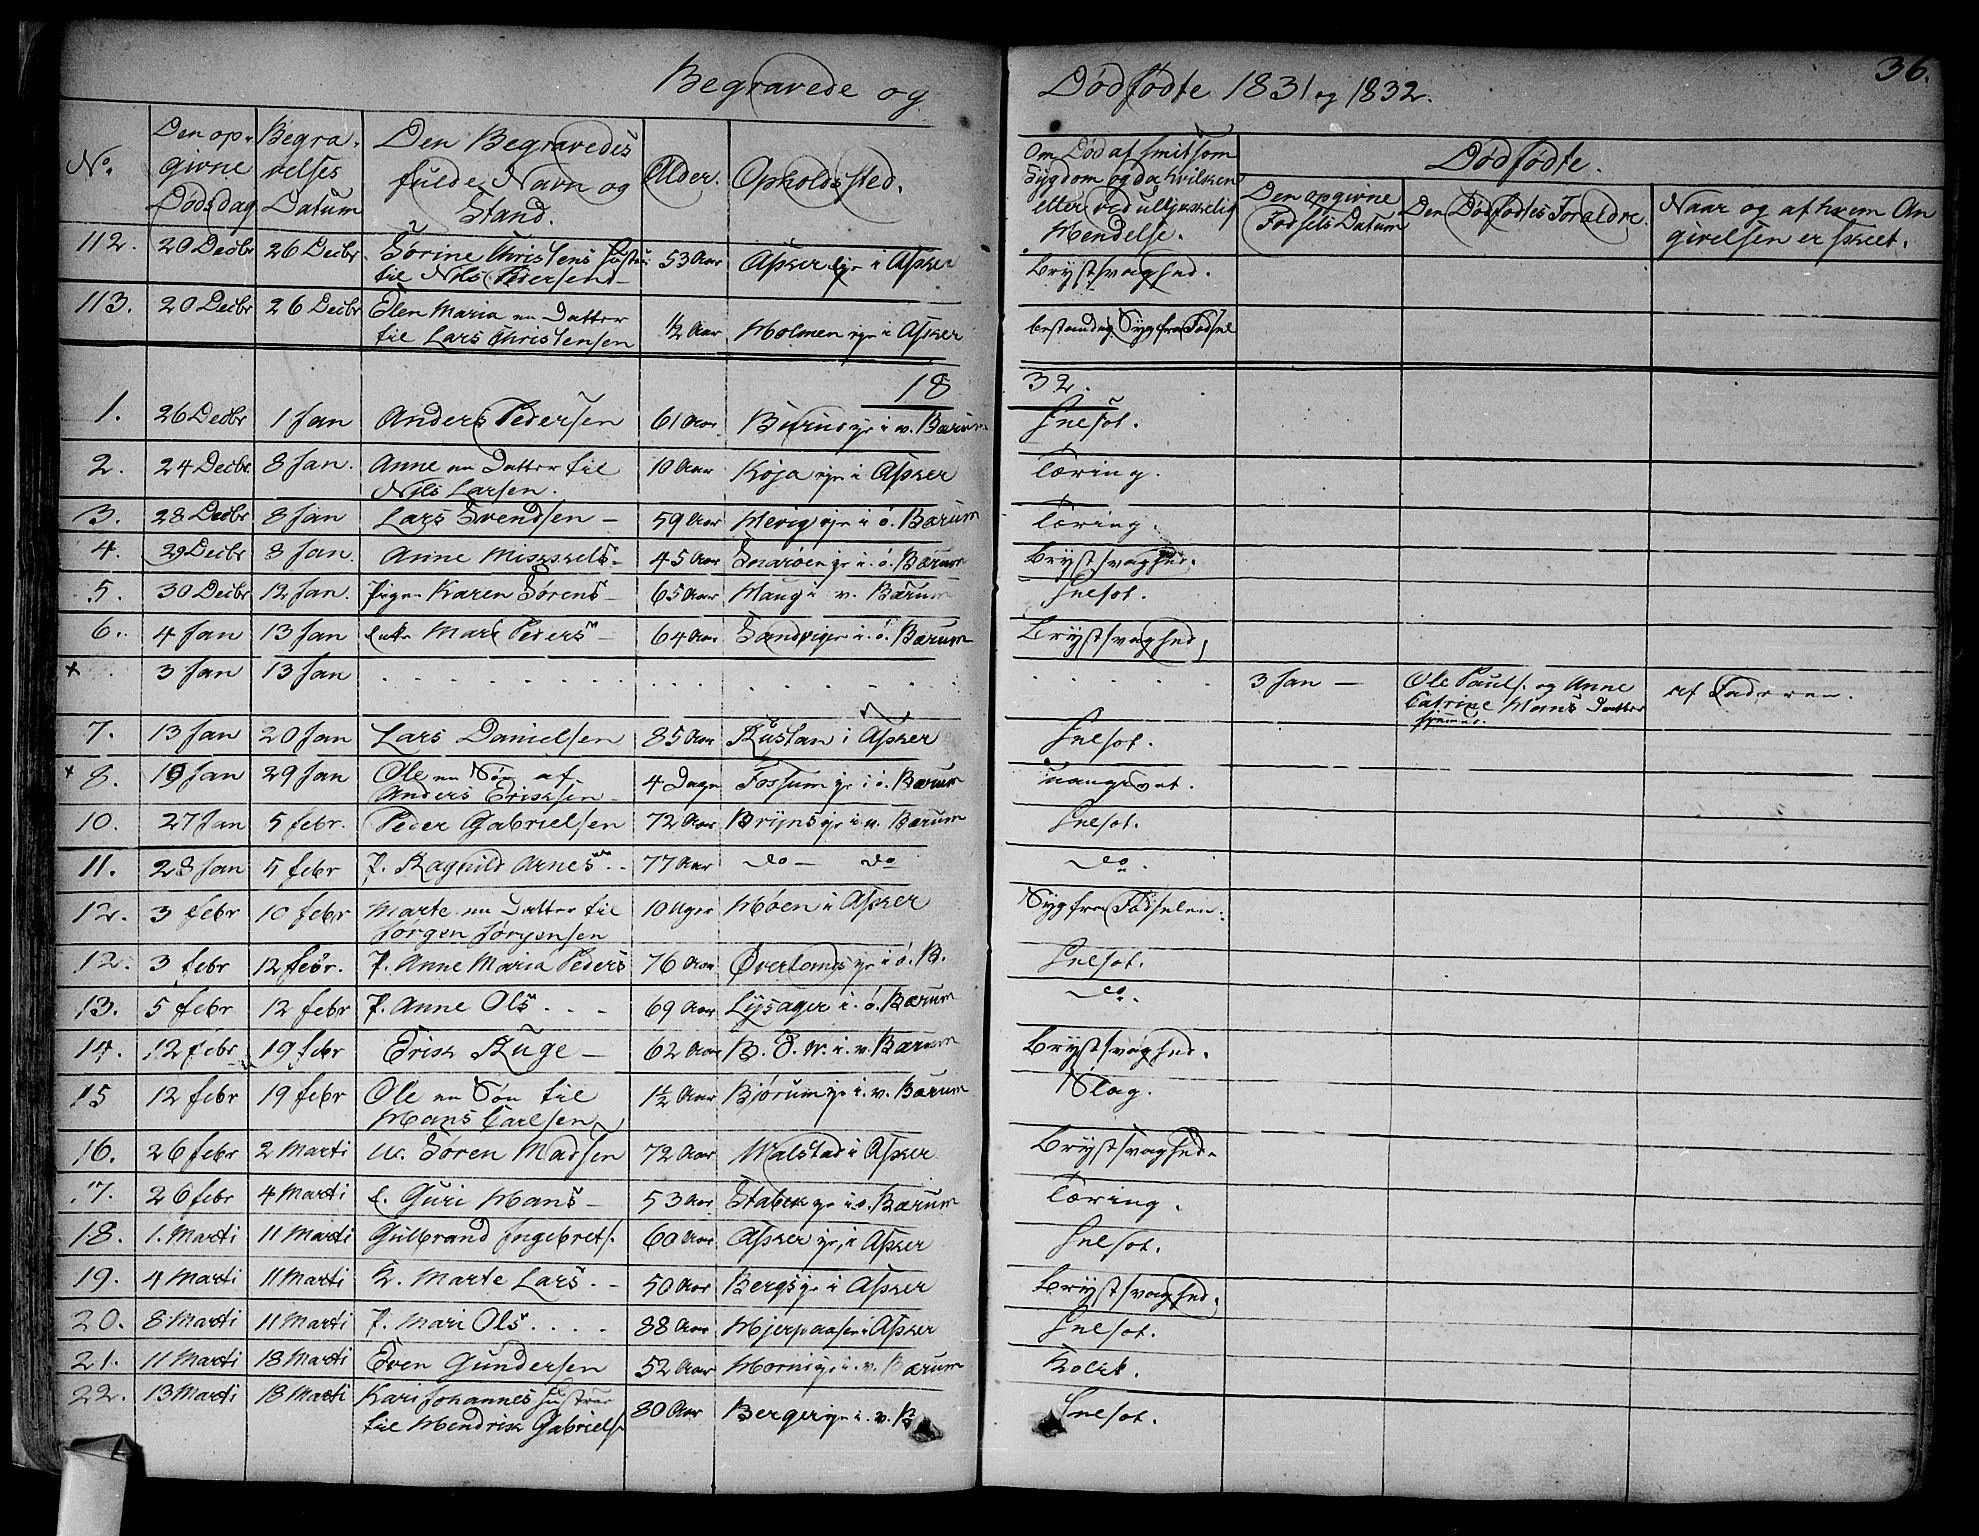 Begravede og
Dödfödte 1831 og 1832.
36.
No.
Den op-
givne
Dödsdag
Begra-
velses
Datum
Den Begravedes
fulde Navn og
Stand.
Alder.
Opholdssted.
Om Död af smitsom
Sygdom og da hvilken
eller ved ulykkelig
Hendelse.
Dödfödte.
Den opgivne
Födsels Datum
Den Dödfödtes Foraldre.
Naar og af hvem An
givelsen er skeet.
112. 20 Decbr 26 Decbr. Sörine Christens Hustru
til Nils Pedersen 53 Aar Asker eje i Asker Brystsvaghed.
113. 20 Decbr 26 Decbr Elen Maria en Datter
til Lars Christensen ½ Aar Holmen eje i Asker bestandig Syg fra Födsel
18 32.
1. 26 Decbr 1 Jan Anders Pedersen 61 Aar Burud eje i v. Bærum Ilsot.
2. 24 Decbr 8 Jan. Anne en Datter til
Nils Larsen. 10 Aar Köja eje i Asker Tæring.
3. 28 Decbr 8 Jan Lars Svendsen – 59 Aar Hevig eje i ö. Bærum Tæring.
4. 29 Decbr 8 Jan. Anne Mikkels – 45 Aar Snaröen eje i ö. Bærum Brystsvaghed.
5. 30 Decbr 12 Jan. Pigen Karen Sörens – 65 Aar Haug i v. Bærum Ilsot.
6. 4 Jan 13 Jan Enke Mari Peders – 64 Aar Sandvigen i ö. Bærum Brystsvaghed,
+ 3 Jan 13 Jan . . . . . 3 Jan — Ole Pauls. og Anne
Catrine Hans Datter
af Faderen.
7. 13 Jan 20 Jan Lars Danielsen 85 Aar Rustan i Asker Ilsot.
+ 8. 19 Jan 29 Jan Ole en Sön af
Anders Eriksen – 4 Dage Fossum eje i ö. Bærum uangivet.
10. 27 Jan 5 febr. Peder Gabrielsen 72 Aar Bryns eje i v. Bærum Ilsot.
11. 28 Jan 5 febr P. Ragnild Arnes . . 77 Aar do – do do.
12. 3 febr 10 febr Marte en Datter til
Jörgen Jörgensen 10 Uger Möen i Asker Syg fra Födselen.
12. 3 febr 12 febr. P. Anne Maria Peders 76 Aar Överlands eje i ö. B. Ilsot.
13. 5 febr 12 febr P. Anne Ols . . . 69 Aar Lysager i. ö. Bærum do.
14. 12 febr 19 febr Erik Ruge – 62 Aar B. V. i. v. Bærum Brystsvaghed.
15 12 febr 19 febr Ole en Sön til
Hans Carlsen 1½ Aar Björum eje i. v. Bærum Slag.
16. 26 febr 2 Marti U. Sören Madsen 72 Aar Valstad i Asker Brystsvaghed.
17. 26 febr 4 Marti E. Guri Hans – 53 Aar Stabek eje i. ö. Bærum Tæring.
18. 1. Marti 11 Marti Gulbrand Ingebrets. 60 Aar Asker eje i Asker Ilsot.
19. 4 Marti 11 Marti K. Marte Lars. – 50 Aar Bergs eje i Asker Brystsvaghed,
20. 8 Marti 11 Marti P. Mari Ols . . . . 88 Aar Hjerpaasen i Asker Ilsot.
21. 11 Marti 18 Marti Even Gundersen 52 Aar Horni eje i. v. Bærum Kolik.
22. 13 Marti 18 Marti Kari Johannes Hustrue
til Hendrik Gabriels. 80 Aar Berger eje i. v. B Ilsot.